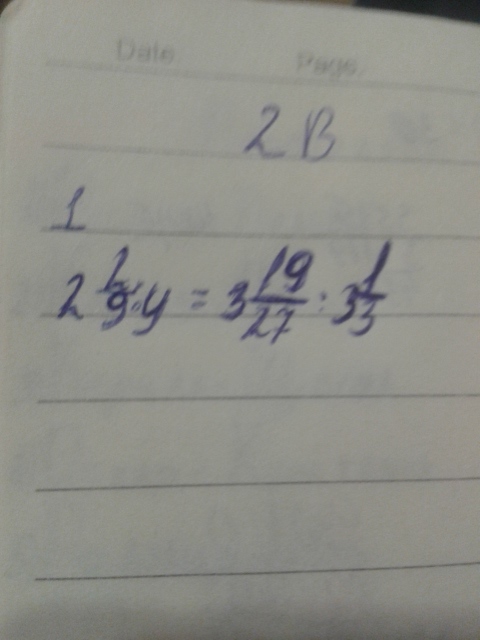 Date Page.
2 В
1
2 1/9 : y = 3 19/27 : 3 1/3